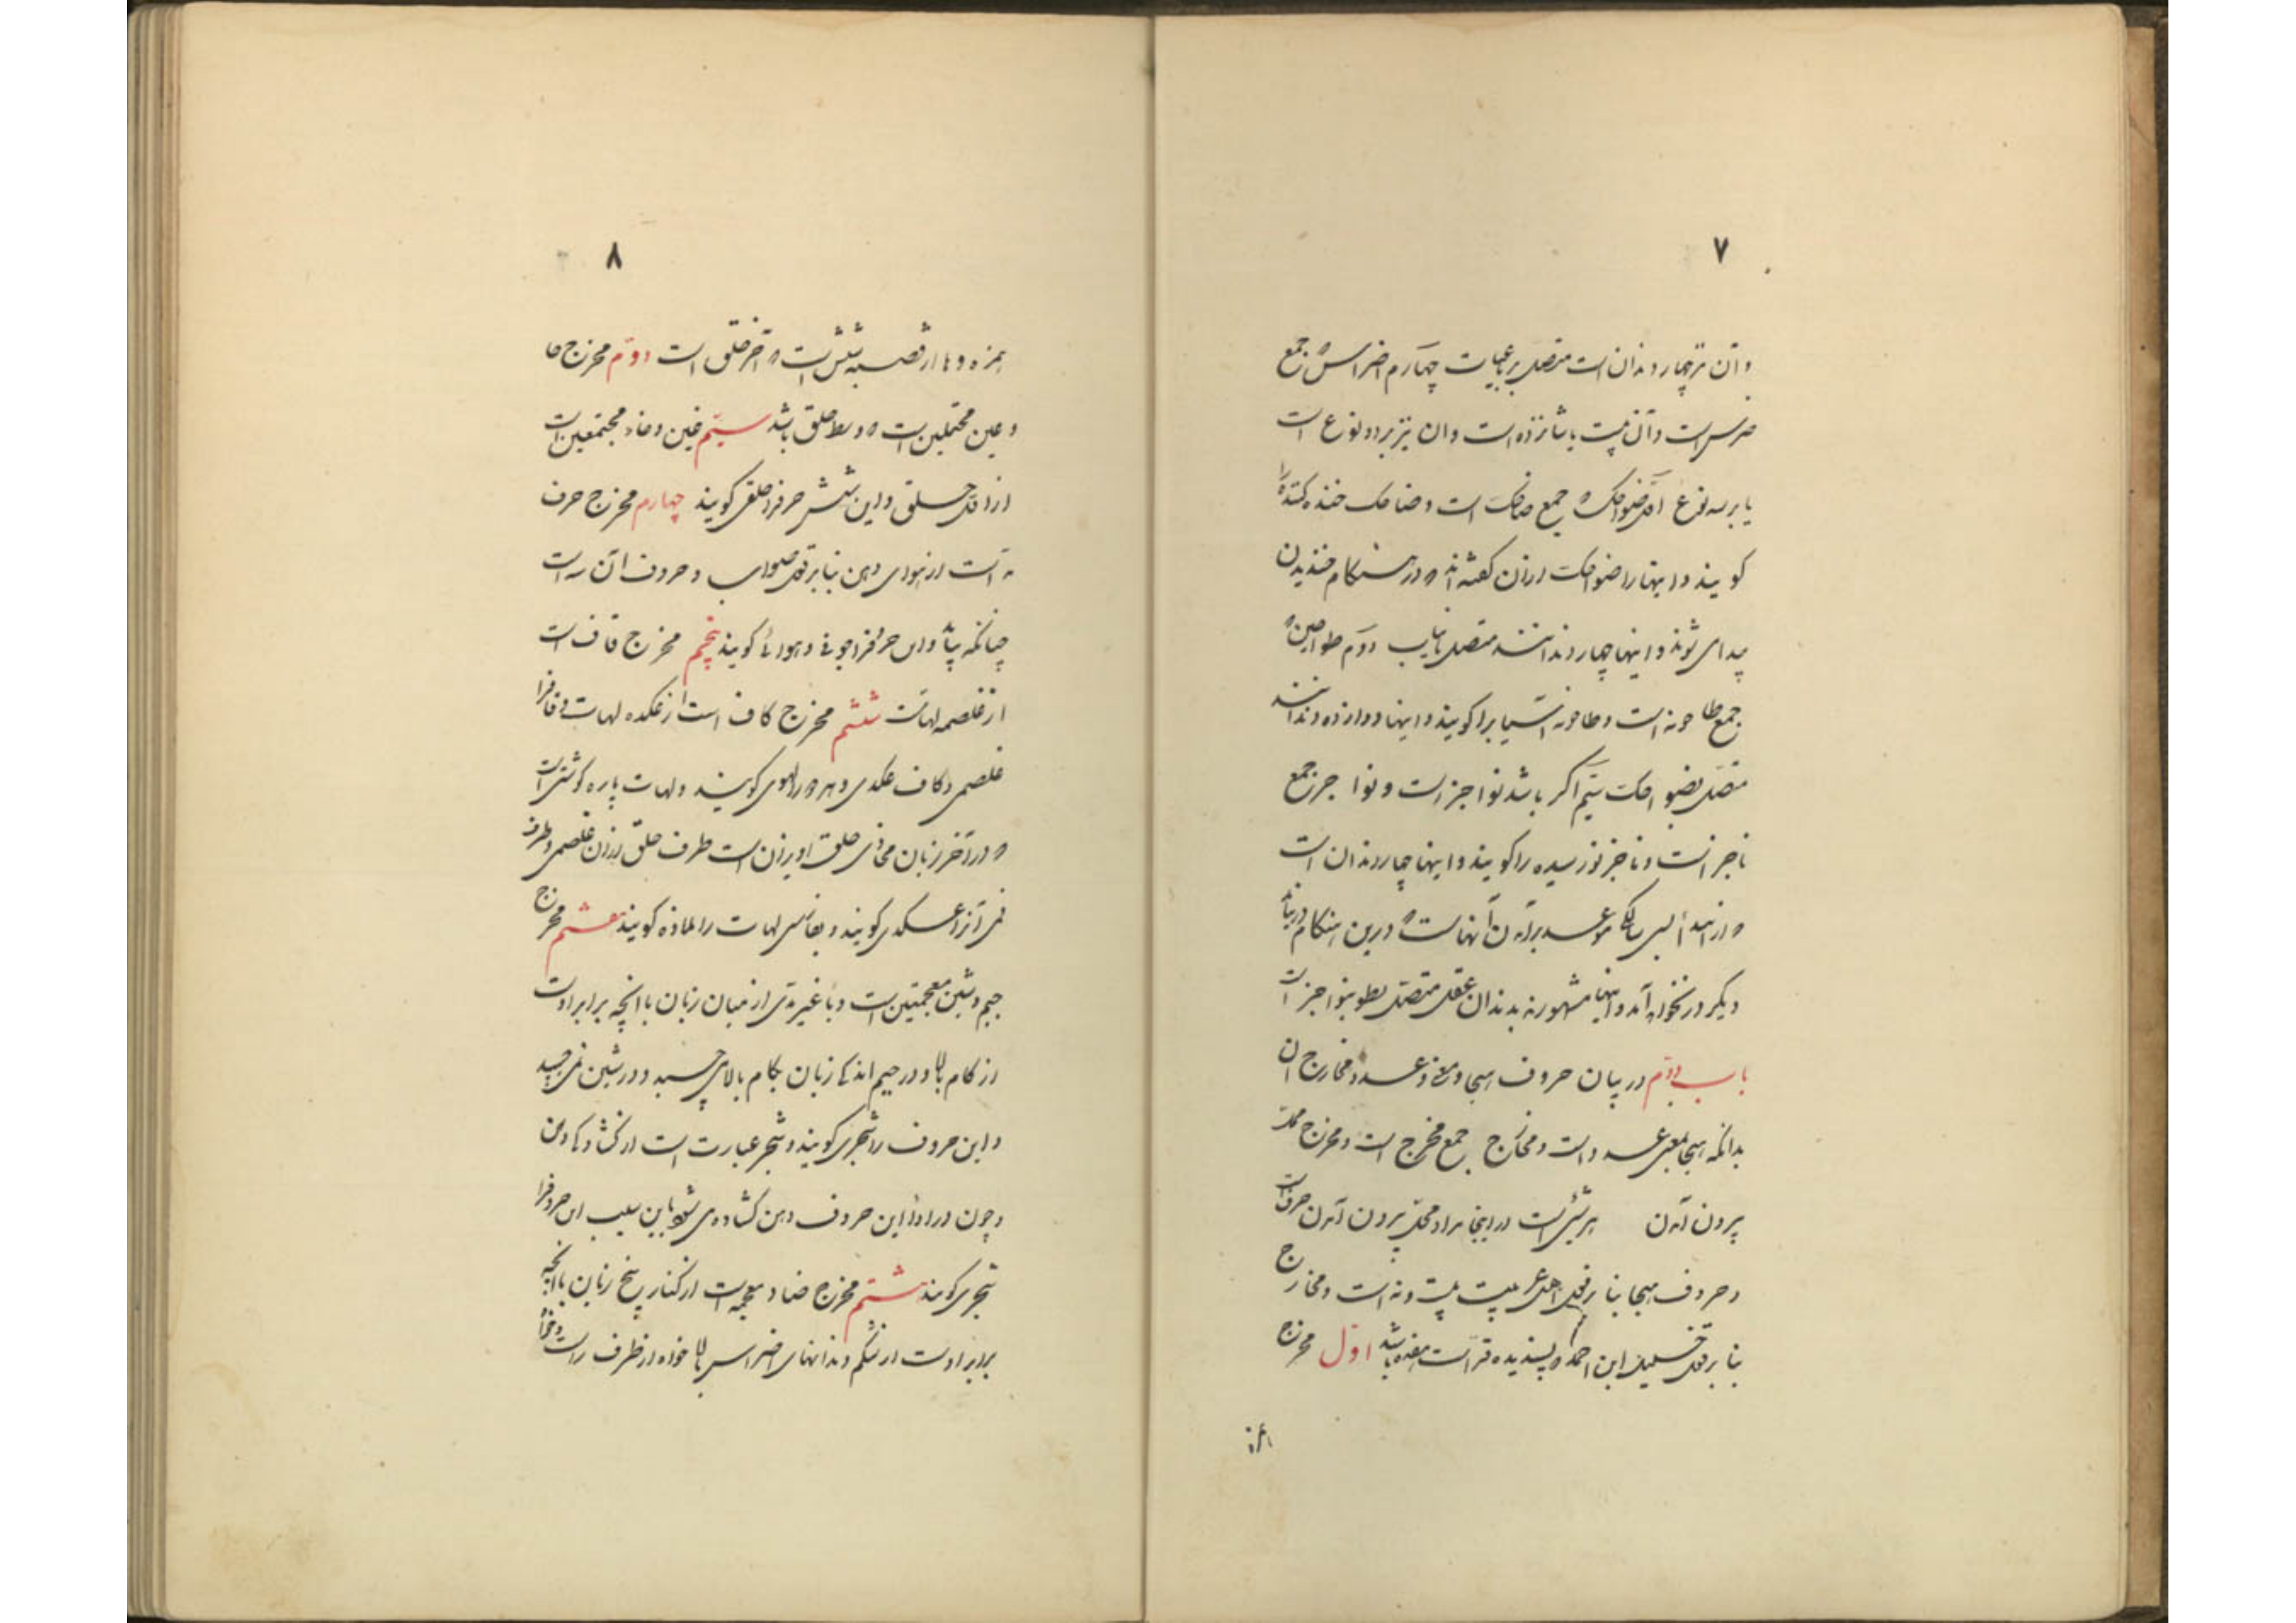 ۷
و آن نیز چهار دندان است متصل برباعیات چهارم اضراس که جمع
ضرس است و آن بیست یا شانزده است و آن نیز بر دو نوع است
یا بر سه نوع اول ضواحک که جمع ضاحک است و ضاحک خنده کننده را
کویند و اینها را ضواحک از آن کفته اند که در هنکام خندیدن
پیدا می شوند و اینها چهار دندانند متصل بانیاب دوم طواحین که
جمع طاحونه است و طاحونه آسیا را کویند و اینها دوازده دندانند
متصل بضواحک سیم اکر باشد نواجز است و نواجز جمع
ناجز است و ناجز نورسیده را کویند و اینها چهار دندان است
که از ابتدأ سی سالکی موعد برآمدن آنهاست که درین هنکام
دیکر در نخواهد آمد و اینها مشهورند بدندان عقل متصل بطواحین نواجز است
باب دوم در بیان حروف هجا و معنی و عدد و مخارج آن
بدانکه هجا بمعنی عدد است و مخارج جمع مخرج است و مخرج محل
بیرون آمدن هر شیئ است در اینجا مراد محل بیرون آمدن حرف است
و حروف هجا بنا بر قول اهل عربیت بیست و نه است و مخارج
بنا بر قول خلیل ابن احمد که پسندیده قرّاست هفده باشد اول مخرج
همزه
۸
همزه و ها از قصبه شش است که آخر حلق است دوم مخرج حا
و عین مهملتین است که وسط حلق باشد سیم غین و خاء معجمتین است
از اول حلق و این شش حرف را حلقی کویند چهارم مخرج حرف
مد است از هوای دهن بنا بر قول صواب و حروف آن سه است
چنانکه بیاید و این حرفرا جوفی و هوائی کویند پنجم مخرج قاف است
از غلصمه لهات ششم مخرج کاف است از عکده لهات و قافرا
غلصمی و کاف عکدی و هر دو را لهوی کویند و لهات پاره کوشتی است
که در آخر زبان محاذی حلق آویزان است طرف حلق از آن غلصمی و طرف
فم آنرا عکدی کویند و بفارسی لهات را ملاذه کویند هفتم مخرج
جیم و شین معجمتین است و یا غیر مدی از میان زبان با آنچه برابر اوست
از کام بالا و در جیم اندکی زبان بکام بالا می چسبد و در شین نمی چسبد
و این حروف را شجری کویند و شجر عبارت است از کشادکی دهن
و چون در ادا این حروف دهن کشاده می شود باین سبب این حروفرا
شجری کویند هشتم مخرج ضاد معجمه است از کنار بیخ زبان با آنچه
برابر اوست از شکم دندانهای اضراس بالا خواه از طرف راست و خواه